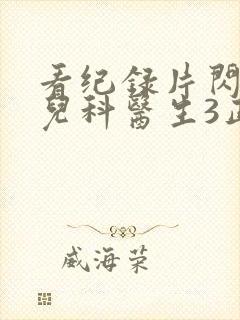 看纪录片閃
兒科醫生3正
威海荣